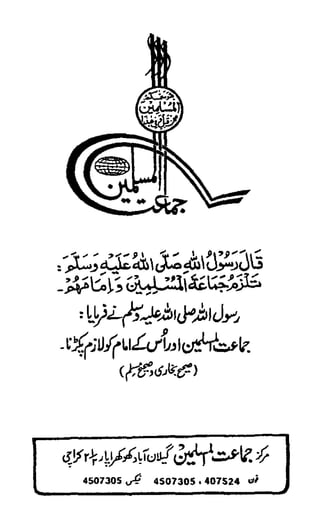 المسلمين
جماعت المسلمین
قَالَ رَسُوْلُ اللّٰهِ صَلَّى اللّٰهُ عَلَيْهِ وَسَلَّمَ :
تَلْزَمُ جَمَاعَةَ الْمُسْلِمِيْنَ وَ اِمَامَهُمْ ۔
رسول اللہ صلی اللہ علیہ وسلم نے فرمایا :
جماعت المسلمین اور اُس کے امام کو لازم پکڑنا ۔
( صحیح بخاری و صحیح مسلم )
مرکز جماعت المسلمین گیلان آباد کھوکھراپار ۲/۱ ۲ کراچی
فون 4507305 ، 407524 فیکس 4507305